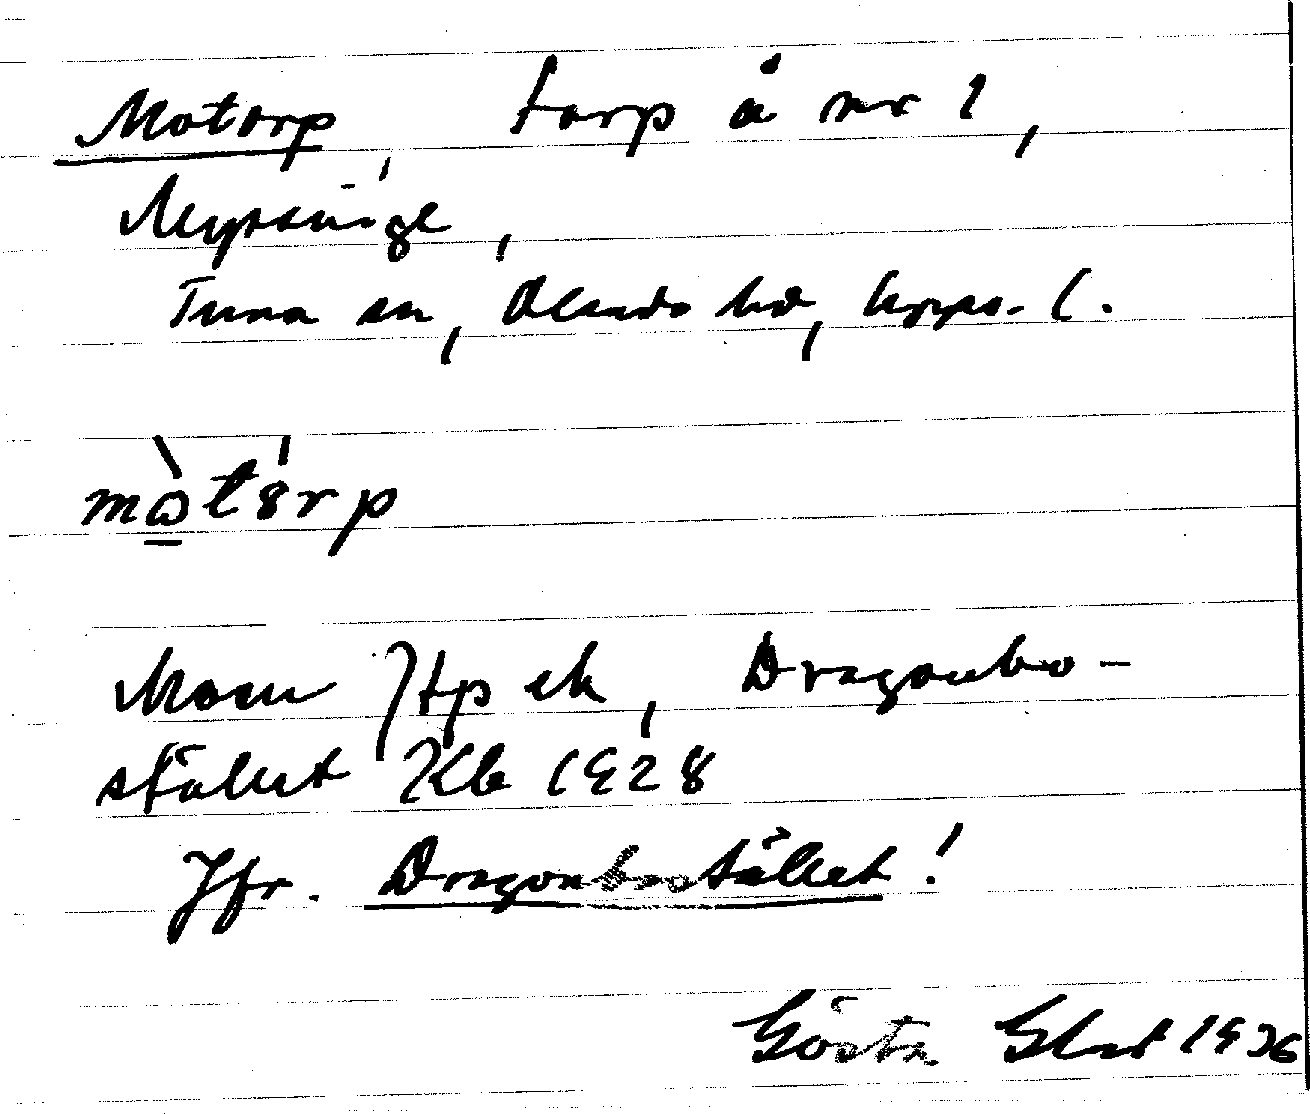 Motorp, torp å nr 1,
Myssinge,
Tuna sn, Olands hd, Upps. l.
màtó̤rp
Moen Jtp ek, Dragonbo-
stället Kb 1928
Jfr. Dragonbostället!
Gösta 1936